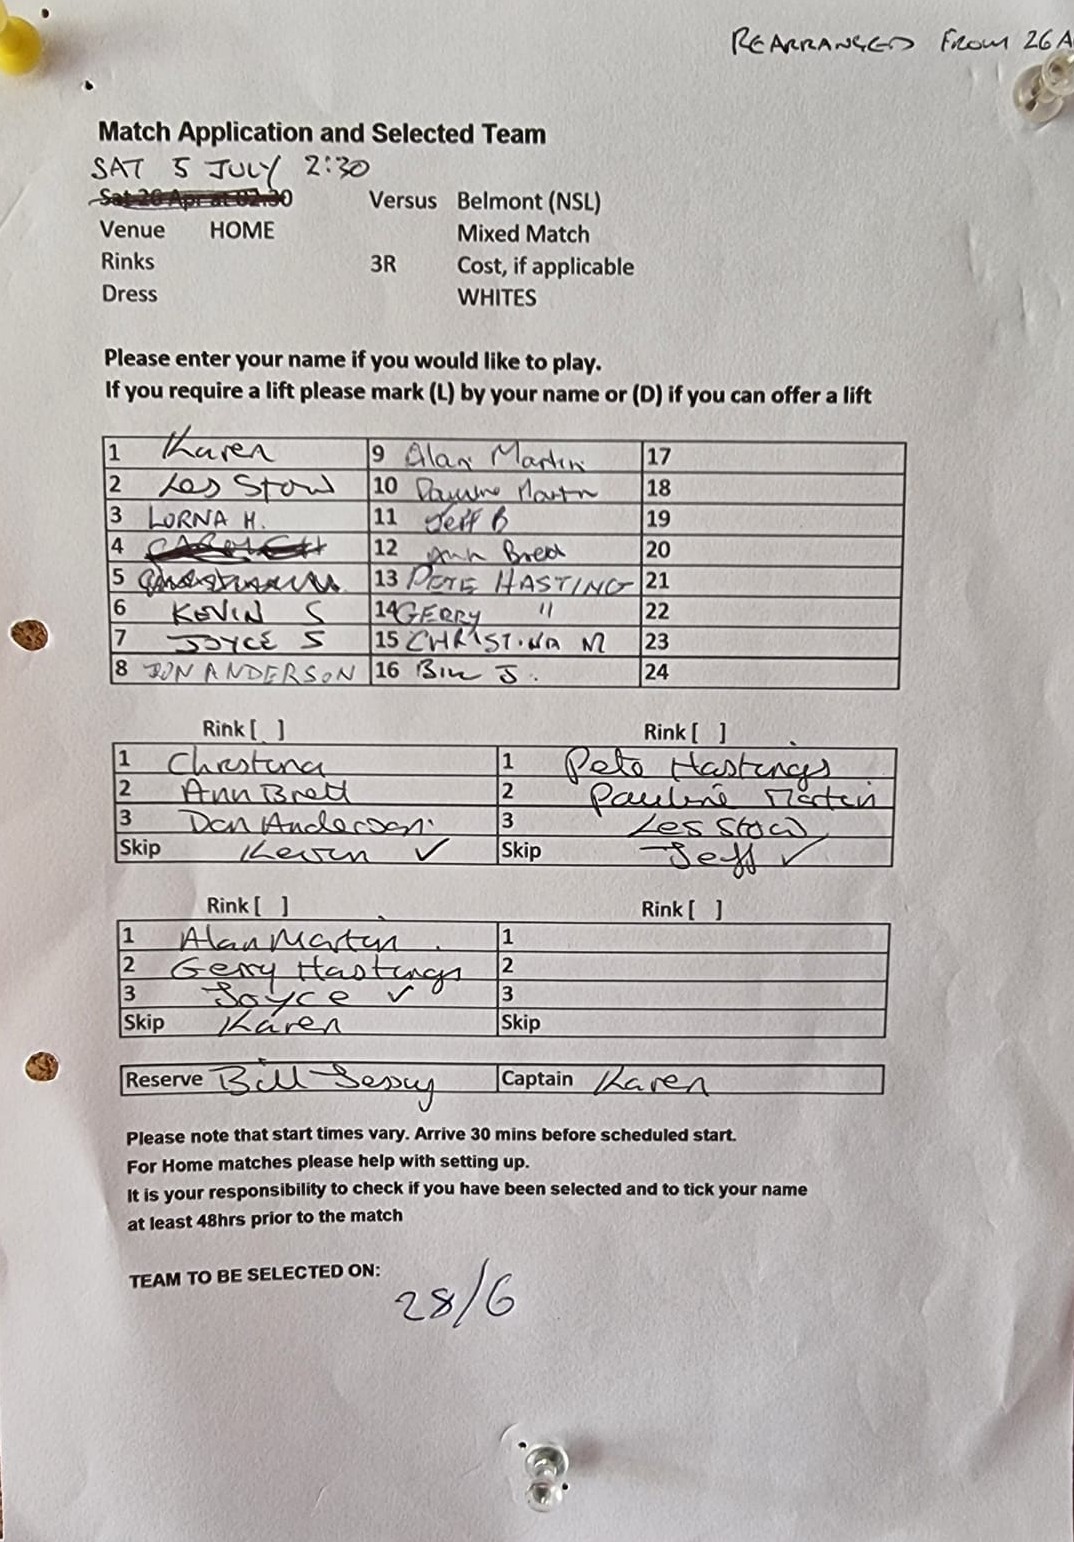 REARRANGED FROM 26 A
Match Application and Selected Team
SAT 5 JULY 2:30
Sat 26 Apr at 02:30 Versus Belmont (NSL)
Venue HOME Mixed Match
Rinks 3R Cost, if applicable
Dress WHITES
Please enter your name if you would like to play.
If you require a lift please mark (L) by your name or (D) if you can offer a lift
1 Karen 9 Alan Martin 17
2 Les Stow 10 Pauline Martin 18
3 LORNA H. 11 Jeff B 19
4 12 Ann Brett 20
5 13 PETE HASTING 21
6 KEVIN S 14 GERRY " 22
7 JOYCE S 15 CHRISTINA M 23
8 DON ANDERSON 16 Bill J. 24
Rink [ ] Rink [ ]
1 Christina 1 Pete Hastings
2 Ann Brett 2 Pauline Martin
3 Don Anderson 3 Les Stow
Skip Kevin ✓ Skip Jeff ✓
Rink [ ] Rink [ ]
1 Alan Martin 1
2 Gerry Hastings 2
3 Joyce ✓ 3
Skip Karen Skip
Reserve Bill Captain Karen
Please note that start times vary. Arrive 30 mins before scheduled start.
For Home matches please help with setting up.
It is your responsibility to check if you have been selected and to tick your name
at least 48hrs prior to the match
TEAM TO BE SELECTED ON:
28/6